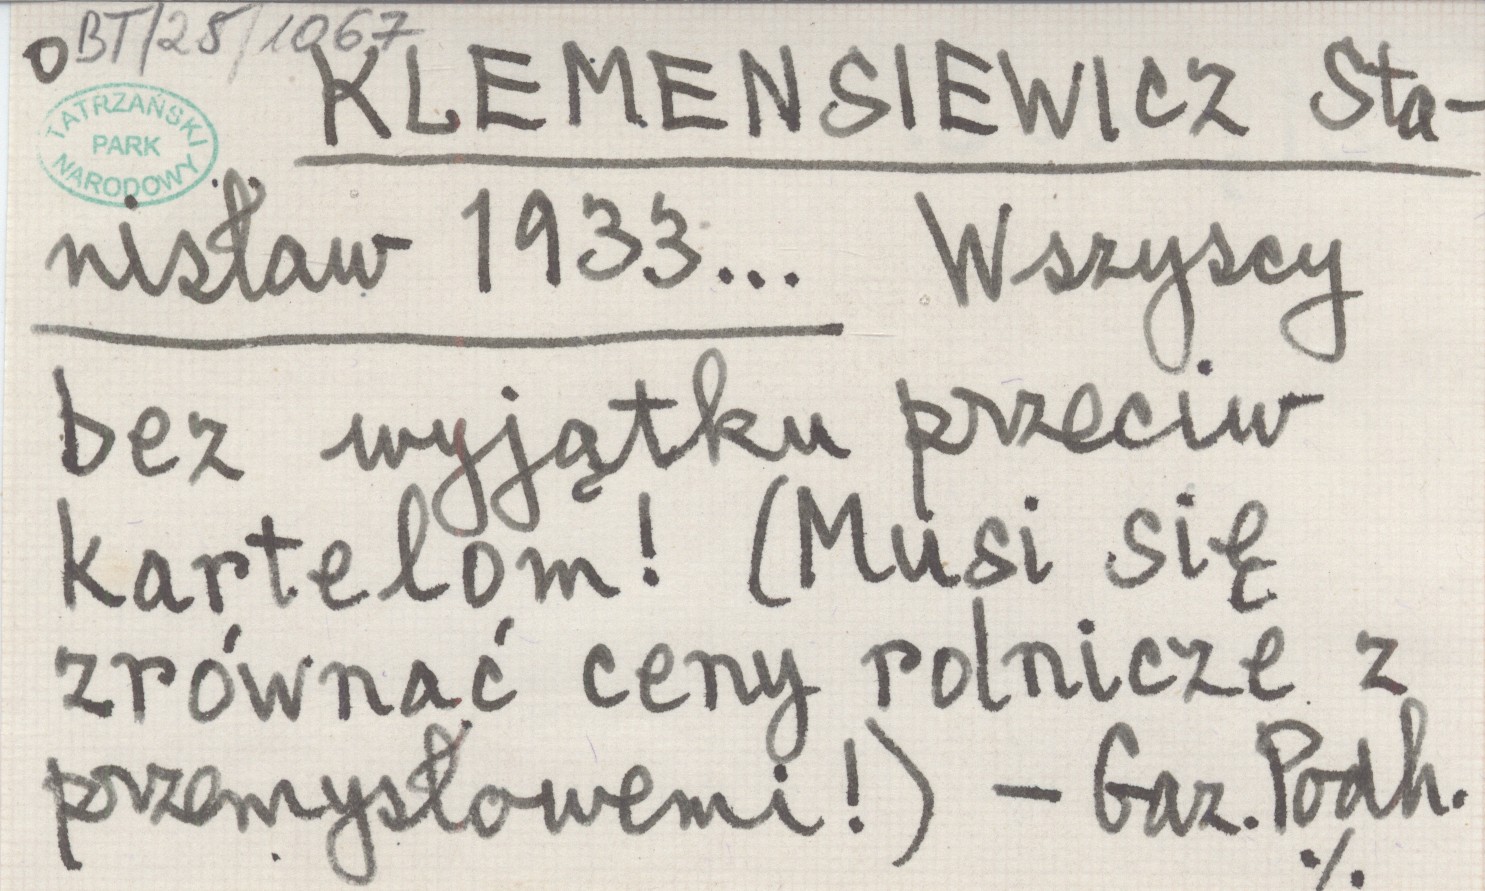 O BT/25/1067
KLEMENSIEWICZ Sta-
TATRZAŃSKI
PARK
NARODOWY
nisław 1933... Wszyscy
bez wyjątku przeciw
kartelom! (Musi się
zrównać ceny rolnicze z
przemysłowemi!) — Gaz. Podh.
./.